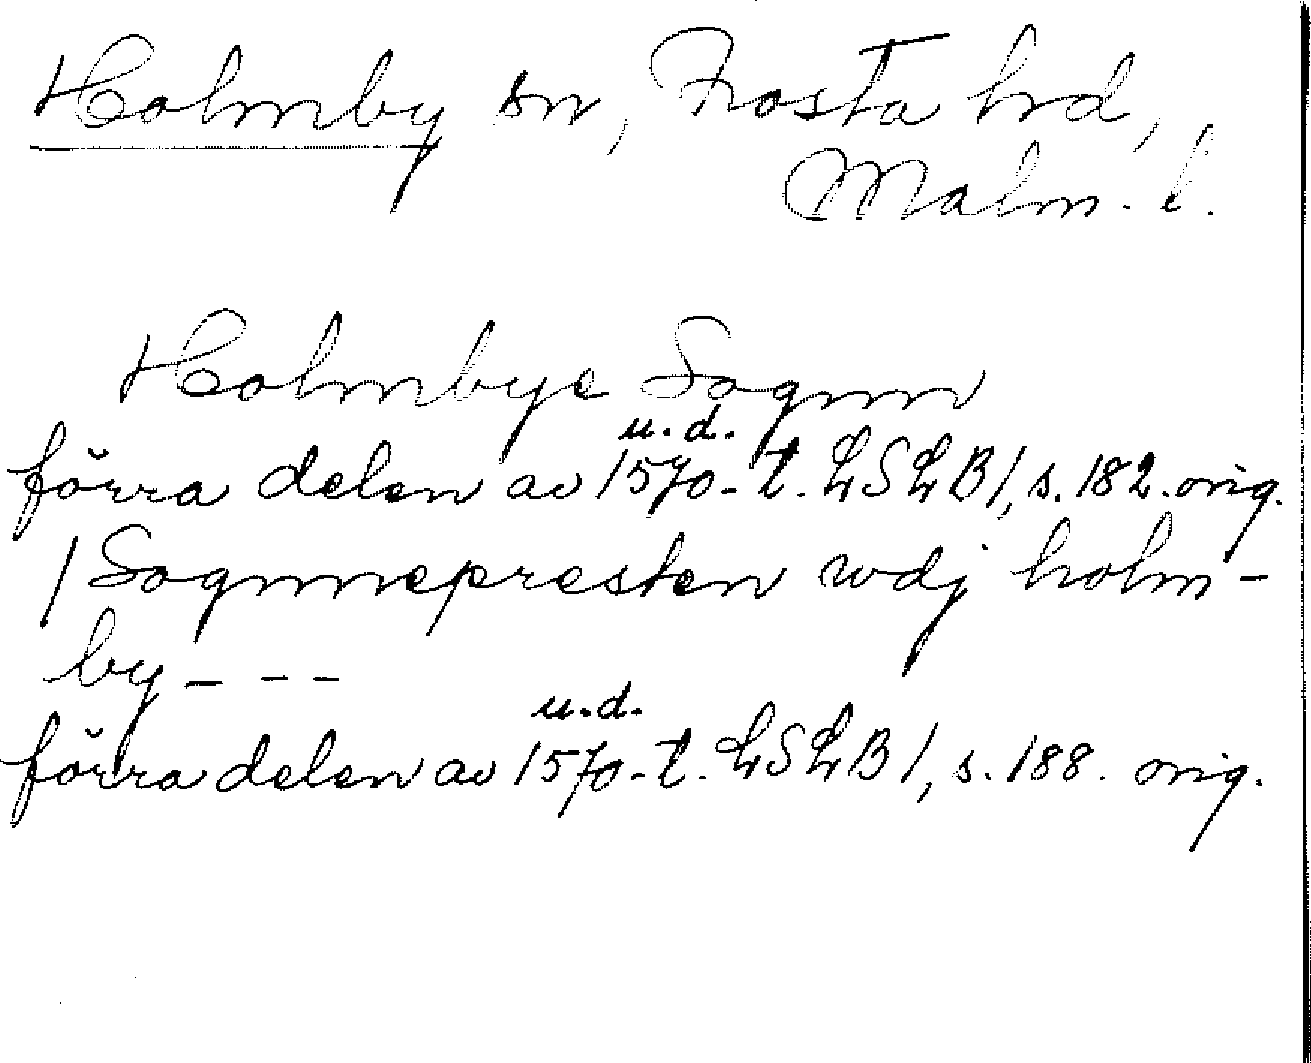 Holmby sn, Frosta hrd,
Malm. l.
Holmbye Sognn
u.d.
förra delen av 1570-t. LSLB1, s. 182. orig.
/Sognnepresten wdj holm-
by - - -
u.d.
förra delen av 1570-t. LSLB1, s. 188. orig.